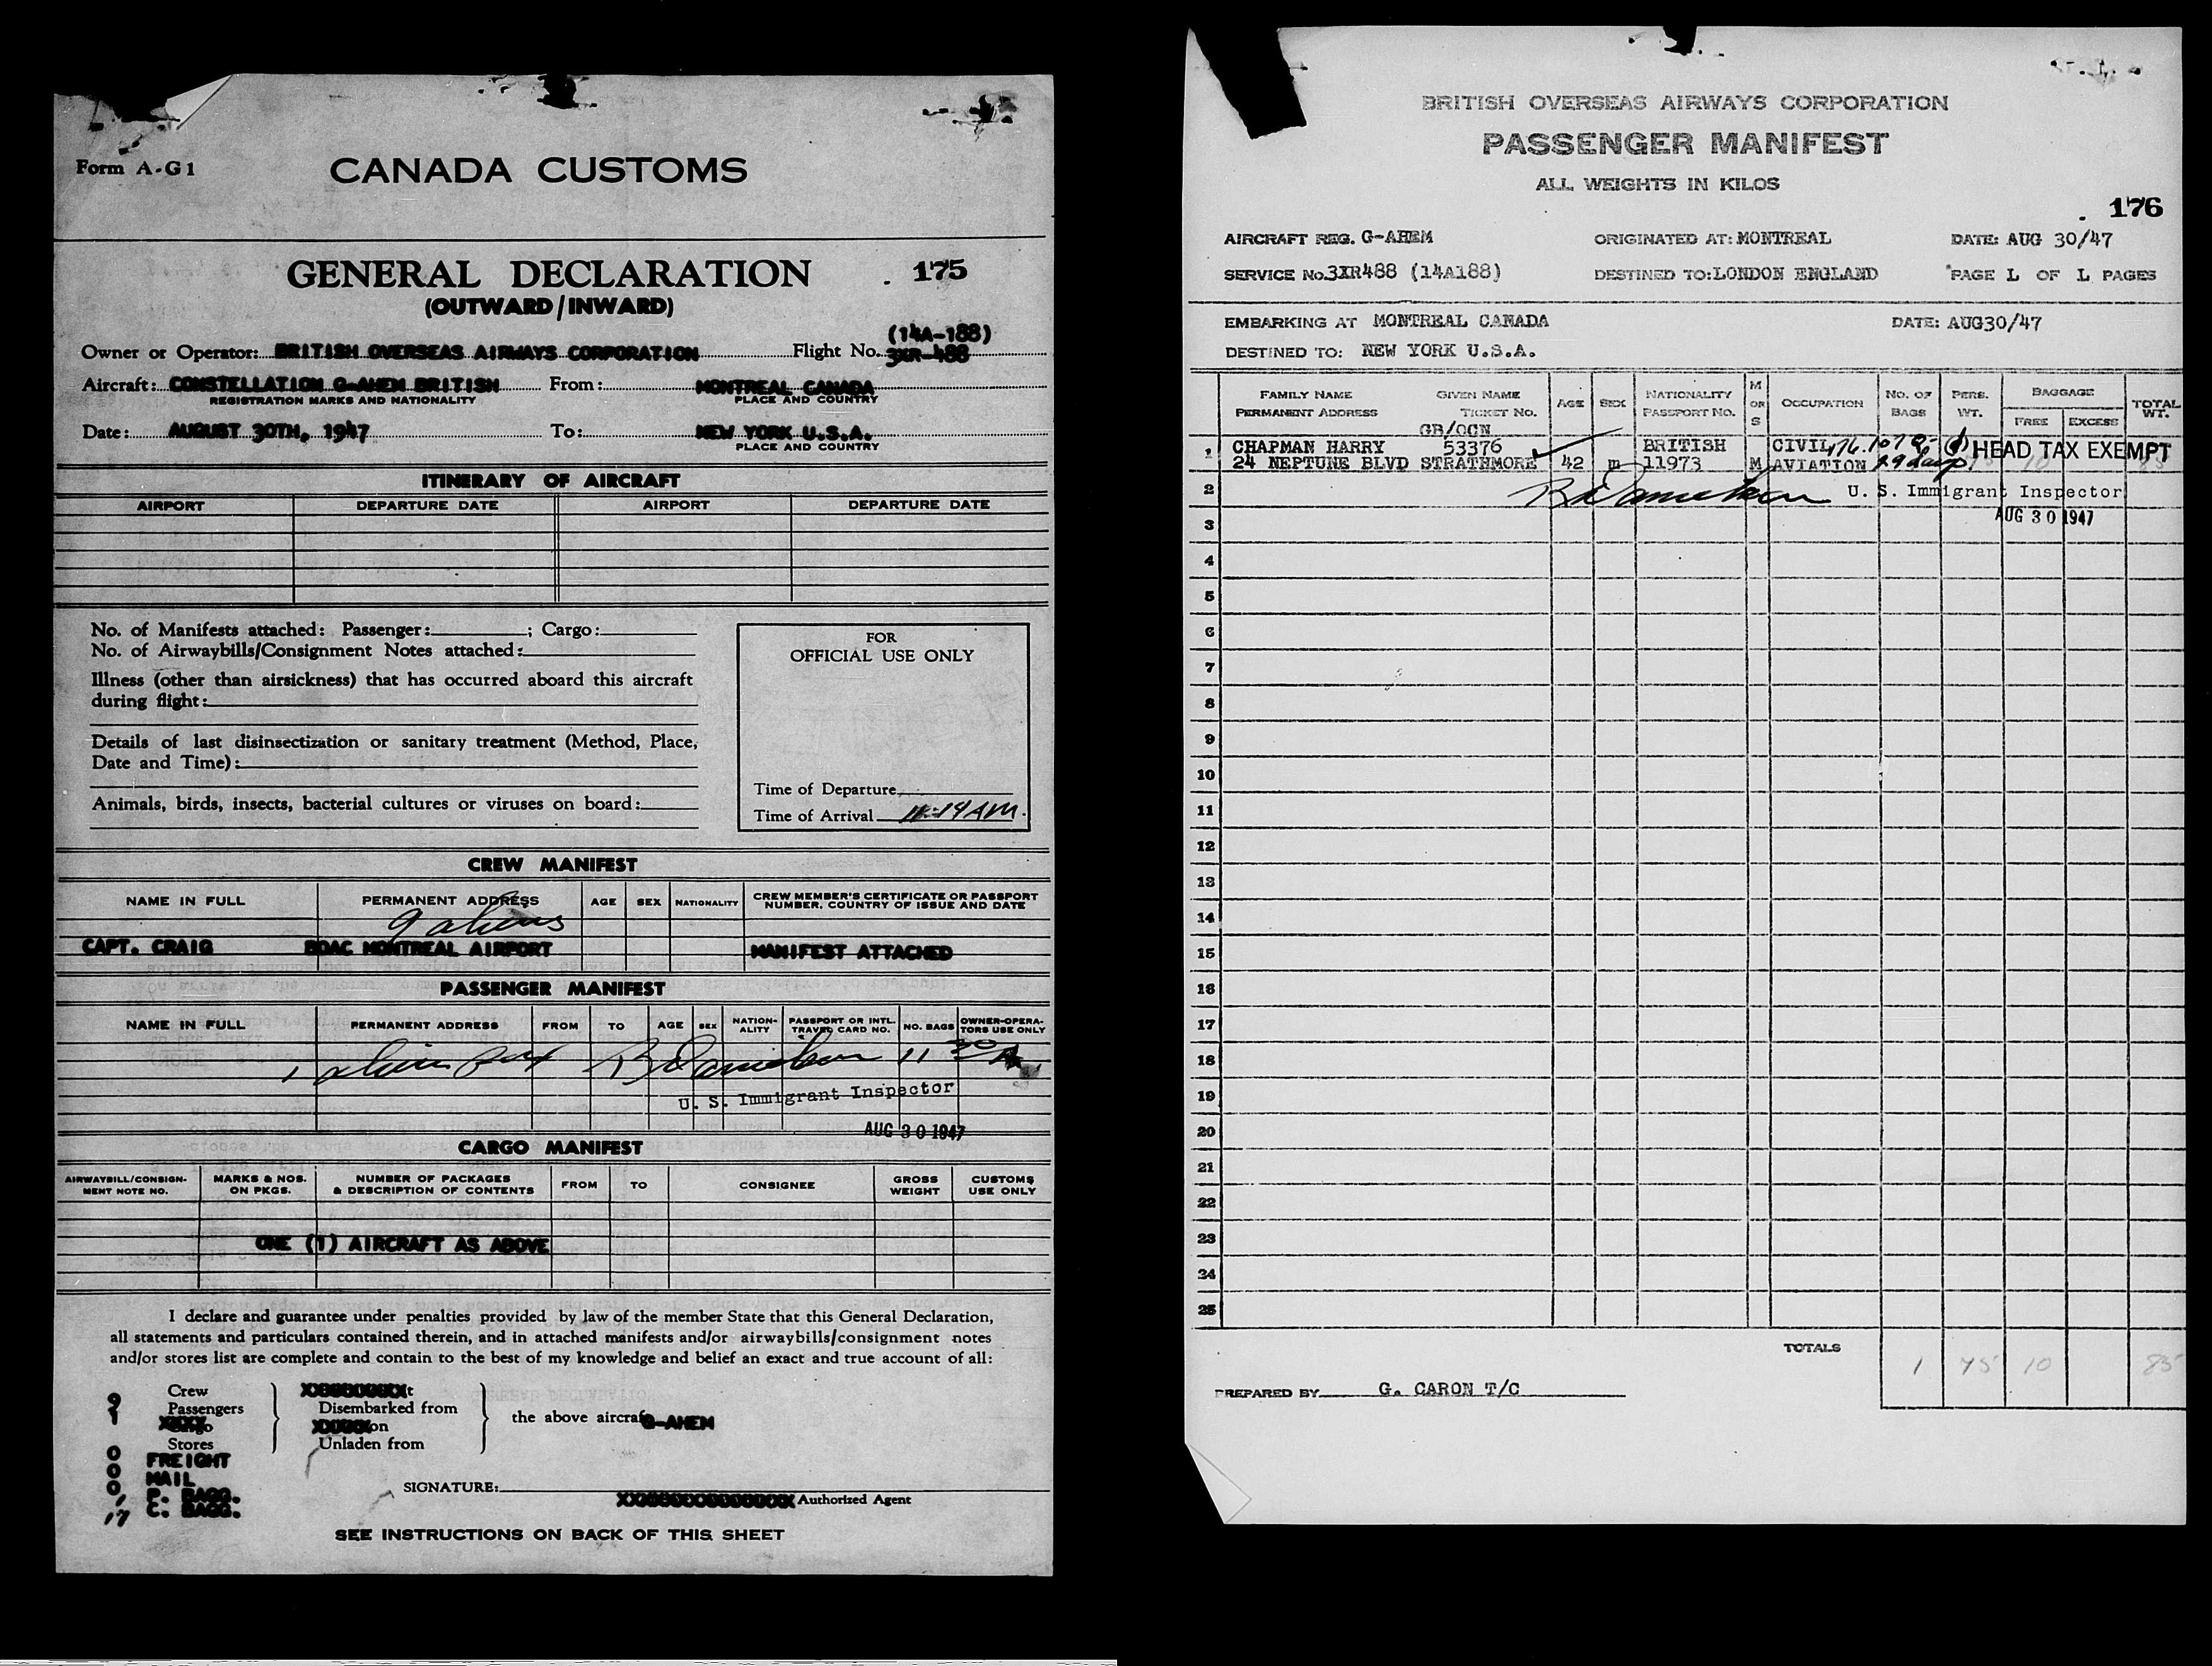 Form A-G1
CANADA CUSTOMS
GENERAL DECLARATION
175
(OUTWARD/INWARD)
(14A-188)
Owner or Operator: BRITISH OVERSEAS AIRWAYS CORPORATION Flight No. 3XR-488
Aircraft: CONSTELLATION G-AHEM BRITISH From: MONTREAL CANADA
REGISTRATION MARKS AND NATIONALITY PLACE AND COUNTRY
Date: AUGUST 30TH, 1947 To: NEW YORK U.S.A.
PLACE AND COUNTRY
ITINERARY OF AIRCRAFT
AIRPORT DEPARTURE DATE AIRPORT DEPARTURE DATE
No. of Manifests attached: Passenger: ; Cargo:
No. of Airwaybills/Consignment Notes attached:
Illness (other than airsickness) that has occurred aboard this aircraft
during flight:
Details of last disinsectization or sanitary treatment (Method, Place,
Date and Time):
Animals, birds, insects, bacterial cultures or viruses on board:
FOR
OFFICIAL USE ONLY
Time of Departure
Time of Arrival 11:14 AM.
CREW MANIFEST
NAME IN FULL PERMANENT ADDRESS AGE SEX NATIONALITY CREW MEMBER'S CERTIFICATE OR PASSPORT
NUMBER, COUNTRY OF ISSUE AND DATE
9 aliens
CAPT. CRAIG BOAC MONTREAL AIRPORT MANIFEST ATTACHED
PASSENGER MANIFEST
NAME IN FULL PERMANENT ADDRESS FROM TO AGE SEX NATION-
ALITY PASSPORT OR INTL.
TRAVEL CARD NO. NO. BAGS OWNER-OPERA-
TORS USE ONLY
1 alien
U. S. Immigrant Inspector
AUG 30 1947
CARGO MANIFEST
AIRWAYBILL/CONSIGN-
MENT NOTE NO. MARKS & NOS.
ON PKGS. NUMBER OF PACKAGES
& DESCRIPTION OF CONTENTS FROM TO CONSIGNEE GROSS
WEIGHT CUSTOMS
USE ONLY
ONE (1) AIRCRAFT AS ABOVE
I declare and guarantee under penalties provided by law of the member State that this General Declaration,
all statements and particulars contained therein, and in attached manifests and/or airwaybills/consignment notes
and/or stores list are complete and contain to the best of my knowledge and belief an exact and true account of all:
9 Crew
1 Passengers Disembarked from the above aircraft G-AHEM
Stores Unladen from
0 FREIGHT
0 MAIL
P. BAGG.
17 C. BAGG.
SIGNATURE:
Authorized Agent
SEE INSTRUCTIONS ON BACK OF THIS SHEET
BRITISH OVERSEAS AIRWAYS CORPORATION
PASSENGER MANIFEST
ALL WEIGHTS IN KILOS
176
AIRCRAFT REG. G-AHEM ORIGINATED AT: MONTREAL DATE: AUG 30/47
SERVICE No. 3XR488 (14A188) DESTINED TO: LONDON ENGLAND PAGE L OF L PAGES
EMBARKING AT MONTREAL CANADA DATE: AUG30/47
DESTINED TO: NEW YORK U.S.A.
FAMILY NAME GIVEN NAME AGE SEX NATIONALITY M OR S OCCUPATION NO. OF BAGS PERS. WT. BAGGAGE TOTAL WT.
PERMANENT ADDRESS TICKET NO. PASSPORT NO. FREE EXCESS
GB/OCN
1 CHAPMAN HARRY 53376 BRITISH CIVIL HEAD TAX EXEMPT
24 NEPTUNE BLVD STRATHMORE 42 m 11973 M AVIATION 29 days
2 U. S. Immigrant Inspector
3 AUG 30 1947
4
5
6
7
8
9
10
11
12
13
14
15
16
17
18
19
20
21
22
23
24
25
TOTALS 1 75 10 85
PREPARED BY G. CARON T/C